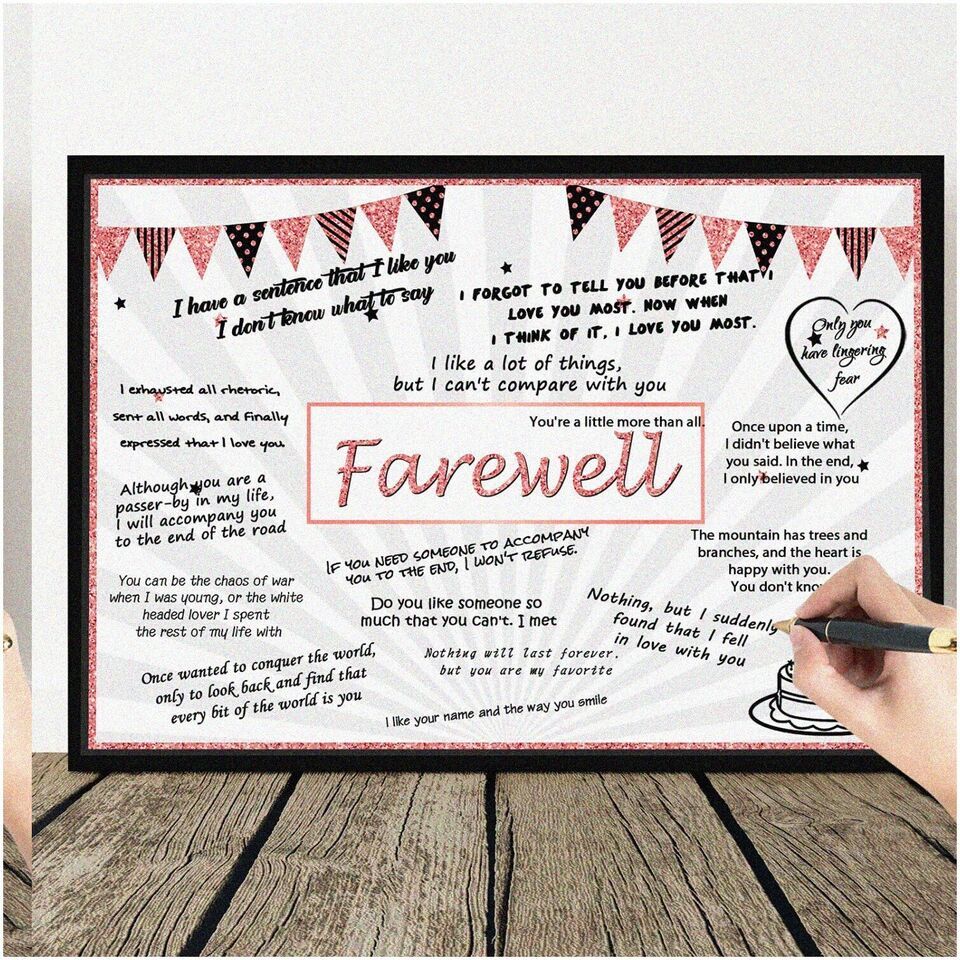 I have a sentence that I like you
I don't know what to say
I FORGOT TO TELL YOU BEFORE THAT I
LOVE YOU MOST. NOW WHEN
I THINK OF IT, I LOVE YOU MOST.
Only you
have lingering
fear
I like a lot of things,
but I can't compare with you
I exhausted all rhetoric,
sent all words, and finally
expressed that I love you.
You're a little more than all.
Farewell
Once upon a time,
I didn't believe what
you said. In the end,
I only believed in you
Although you are a
passer-by in my life,
I will accompany you
to the end of the road
IF YOU NEED SOMEONE TO ACCOMPANY
YOU TO THE END, I WON'T REFUSE.
The mountain has trees and
branches, and the heart is
happy with you.
You don't
You can be the chaos of war
when I was young, or the white
headed lover I spent
the rest of my life with
Do you like someone so
much that you can't. I met
Nothing, but I suddenly
found that I fell
in love with you
Nothing will last forever.
but you are my favorite
Once wanted to conquer the world,
only to look back and find that
every bit of the world is you
I like your name and the way you smile